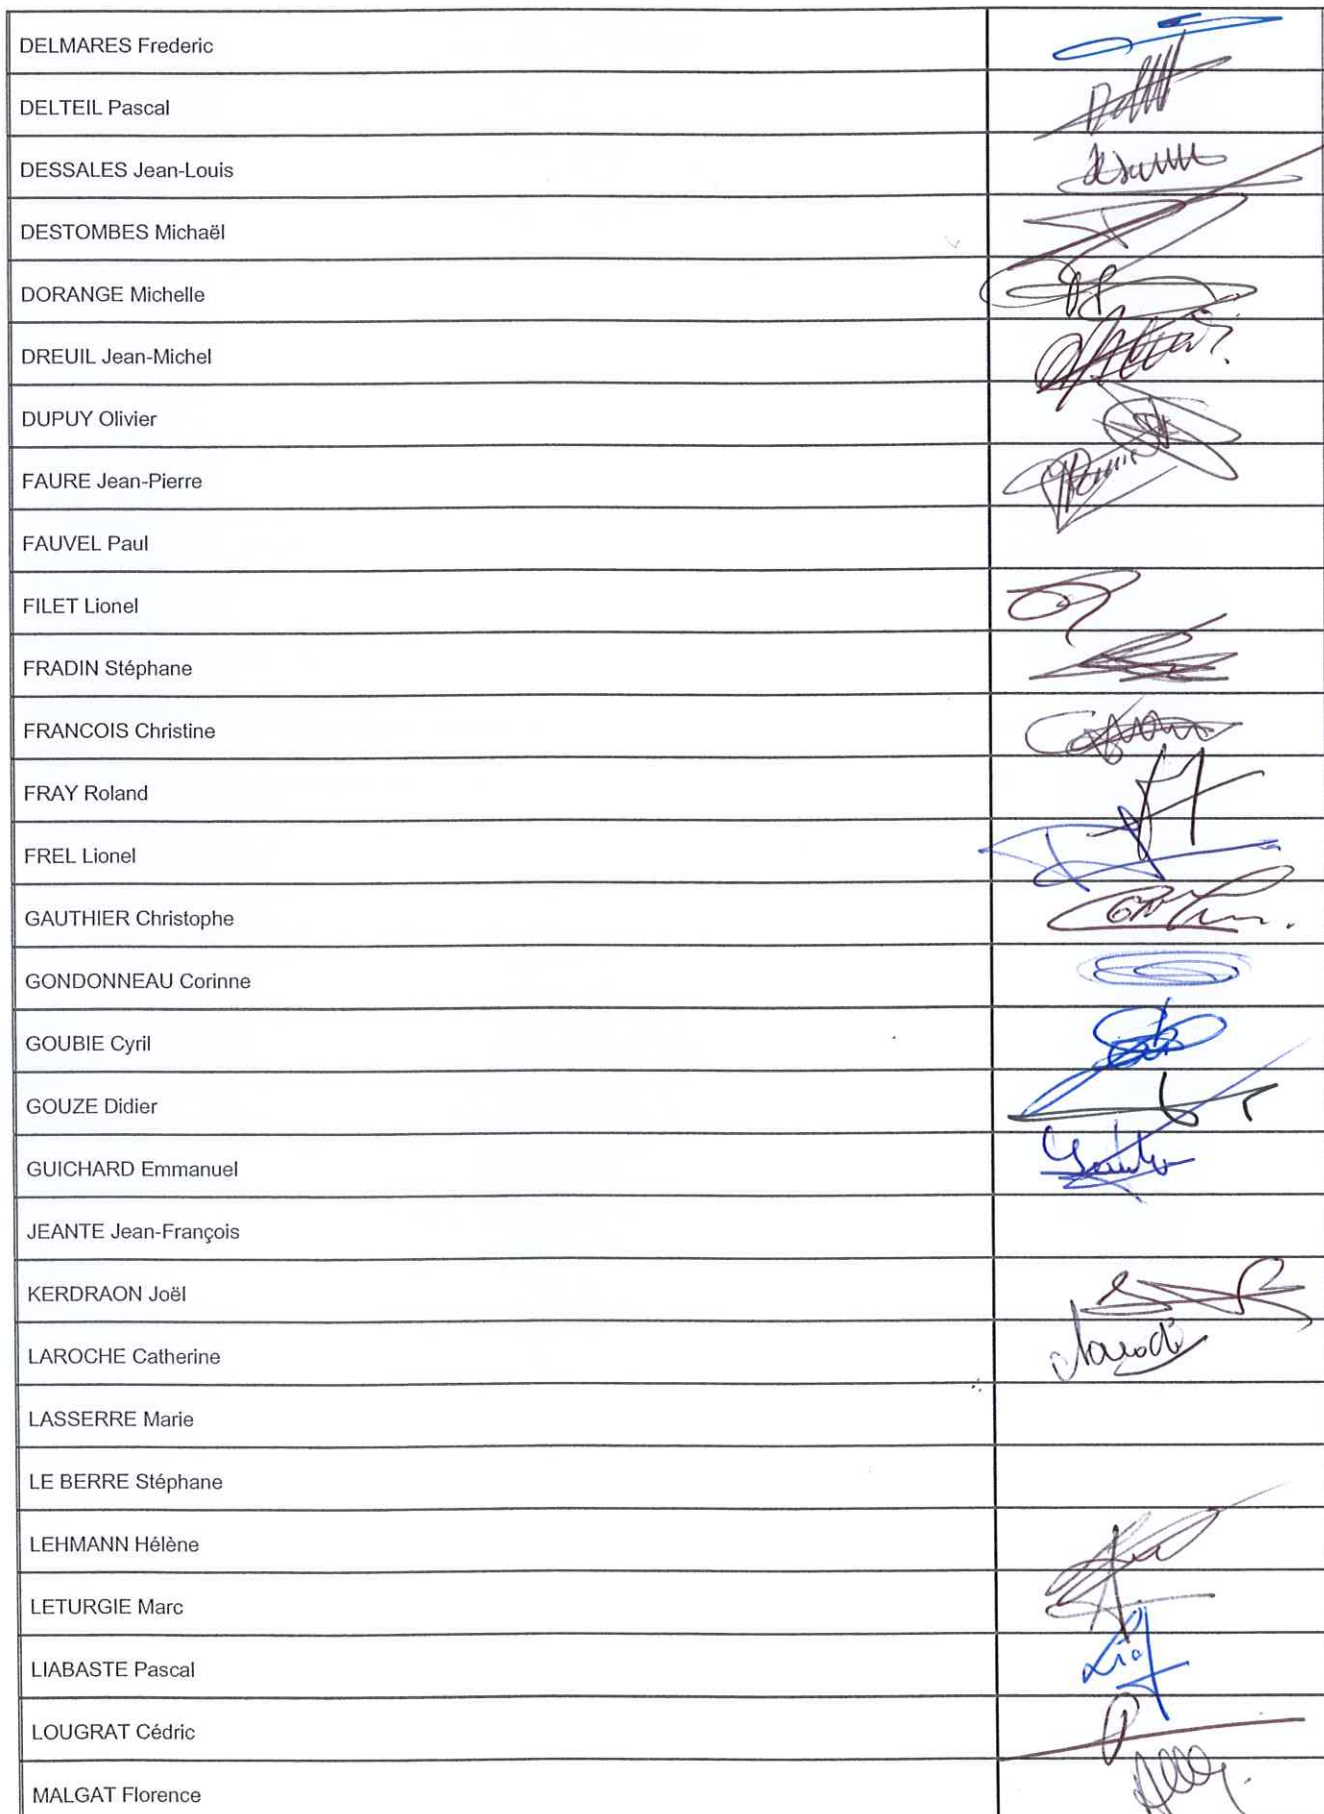 DELMARES Frederic
DELTEIL Pascal
DESSALES Jean-Louis
DESTOMBES Michaël
DORANGE Michelle
DREUIL Jean-Michel
DUPUY Olivier
FAURE Jean-Pierre
FAUVEL Paul
FILET Lionel
FRADIN Stéphane
FRANCOIS Christine
FRAY Roland
FREL Lionel
GAUTHIER Christophe
GONDONNEAU Corinne
GOUBIE Cyril
GOUZE Didier
GUICHARD Emmanuel
JEANTE Jean-François
KERDRAON Joël
LAROCHE Catherine
LASSERRE Marie
LE BERRE Stéphane
LEHMANN Hélène
LETURGIE Marc
LIABASTE Pascal
LOUGRAT Cédric
MALGAT Florence